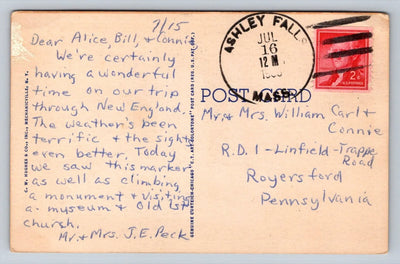 7/15
Dear Alice, Bill, & Connie,
We're certainly
having a wonderful
time on our trip
through New England.
The weather's been
terrific & the sights
even better. Today
we saw this marker
as well as climbing
a monument & visiting
a museum & old 1st
church.
Mr. & Mrs. J.E. Peck
GENUINE CURTEICH-CHICAGO "C.T. ART-COLORTONE" POST CARD
ASHLEY FALLS
JUL
16
12 M
MASS.
2¢
POST CARD
Mr. & Mrs. William Carl &
Connie
R.D. 1 - Linfield - Trappe
Road
Royersford
Pennsylvania